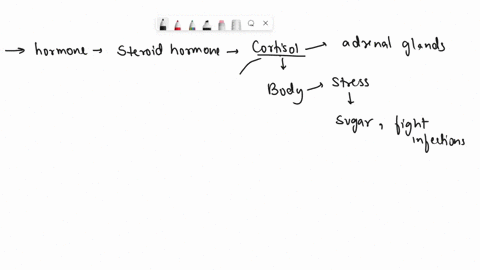 → hormone → Steroid hormone → Cortisol → adrenal glands
↓
Body → Stress
↓
Sugar, fight
infections